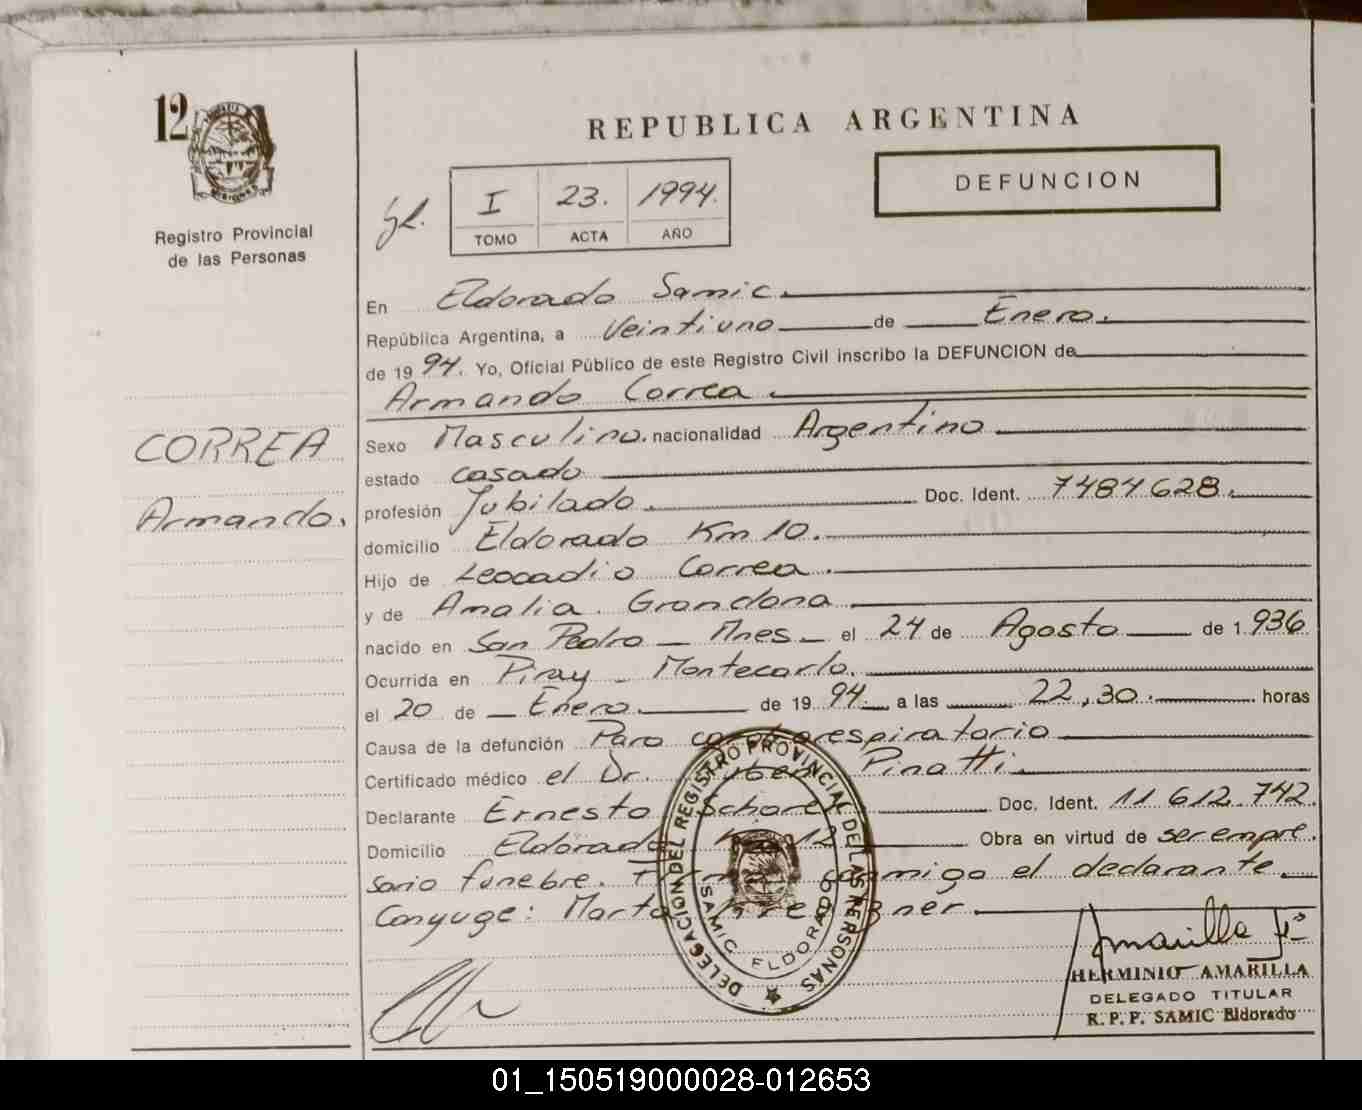 12
Registro Provincial
de las Personas
CORREA
Armando.
REPUBLICA ARGENTINA
I 23. 1994.
TOMO ACTA AÑO
DEFUNCION
En Eldorado Samic.
República Argentina, a Veintiuno de Enero.
de 19 94. Yo, Oficial Público de este Registro Civil inscribo la DEFUNCION de
Armando Correa
Sexo Masculino. nacionalidad Argentino
estado casado
profesión Jubilado. Doc. Ident. 7484628.
domicilio Eldorado Km 10.
Hijo de Leocadio Correa.
y de Amalia. Grondona
nacido en San Pedro - Mnes - el 24 de Agosto de 1.936
Ocurrida en Piray - Montecarlo.
el 20 de Enero. de 19 94. a las 22,30. horas
Causa de la defunción Paro cardiorespiratorio
Certificado médico el Dr. Ruben Pinatti
Declarante Ernesto Doc. Ident. 11.612.742.
Domicilio Eldorado Km 12 Obra en virtud de ser empre.
sario funebre. Firma conmigo el declarante.
Conyuge: Marta
DELEGACION DEL REGISTRO PROVINCIAL DE LAS PERSONAS
SAMIC ELDORADO
HERMINIO AMARILLA
DELEGADO TITULAR
R. P. P. SAMIC Eldorado
01_150519000028-012653